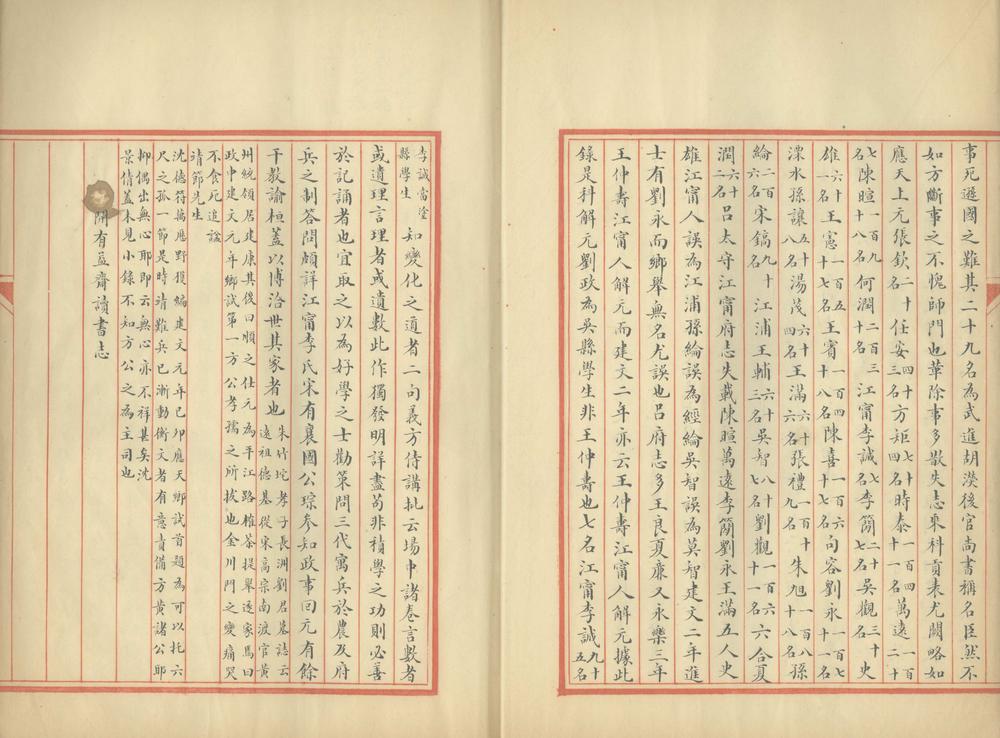 事死遜國之難其二十九名為武進胡濙後官尚書稱名臣然不
如方斷事之不愧師門也革除事多散失志乘科貢表尤闕略如
應天上元張欽二十名任安四十三名方矩七十四名時泰一百四十一名萬遠一百二十
七名陳暄一百九十八名何潤二百三十名江甯李誠名李簡二十七名吳觀三十名史
雄六十一名王憲一百五十七名王賓一百四十八名陳喜一百六十七名句容劉永一百七十一名
溧水孫讓五十八名湯茂六十四名王滿六十六名張禮一百十九名朱旭一百八十八名孫
綸二百六名宋鎬九十名江浦王輔六十三名吳智八十七名劉觀一百六十一名六合夏
潤六十二名呂太守江甯府志失載陳暄萬遠李簡劉永王滿五人史
雄江甯人誤為江浦孫綸誤為經綸吳智誤為莫智建文二年進
士有劉永而鄉舉無名尤誤也呂府志多王良夏廉又永樂三年
王仲壽江甯人解元而建文二年亦云王仲壽江甯人解元據此
錄是科解元劉政為吳縣學生非王仲壽也七名江甯李誠九十五名
李誠當塗縣學生知變化之道者二句義方侍講批云場中諸卷言數者
或遺理言理者或遺數此作獨發明詳盡苟非積學之功則必善
於記誦者也宜取之以為好學之士勸策問三代寓兵於農及府
兵之制答問頗詳江甯李氏宋有襄國公琮參知政事回元有餘
干教諭桓蓋以博洽世其家者也朱竹垞孝子長洲劉君墓誌云
遠祖德基從宋高宗南渡官黃
州統領居建康其後曰順之仕元為平江路榷茶提舉遂家焉曰
政中建文元年鄉試第一方公孝孺之所拔也金川門之變痛哭
不食死追諡
靖節先生
沈德符萬歷野獲編建文元年己卯應天鄉試首題為可以托六
尺之孤一節是時靖難兵已漸動衡文者有意責備方黃諸公耶
抑偶出無心耶即云無心亦不祥甚矣沈
景倩蓋未見小錄不知方公之為主司也
開有益齋讀書志